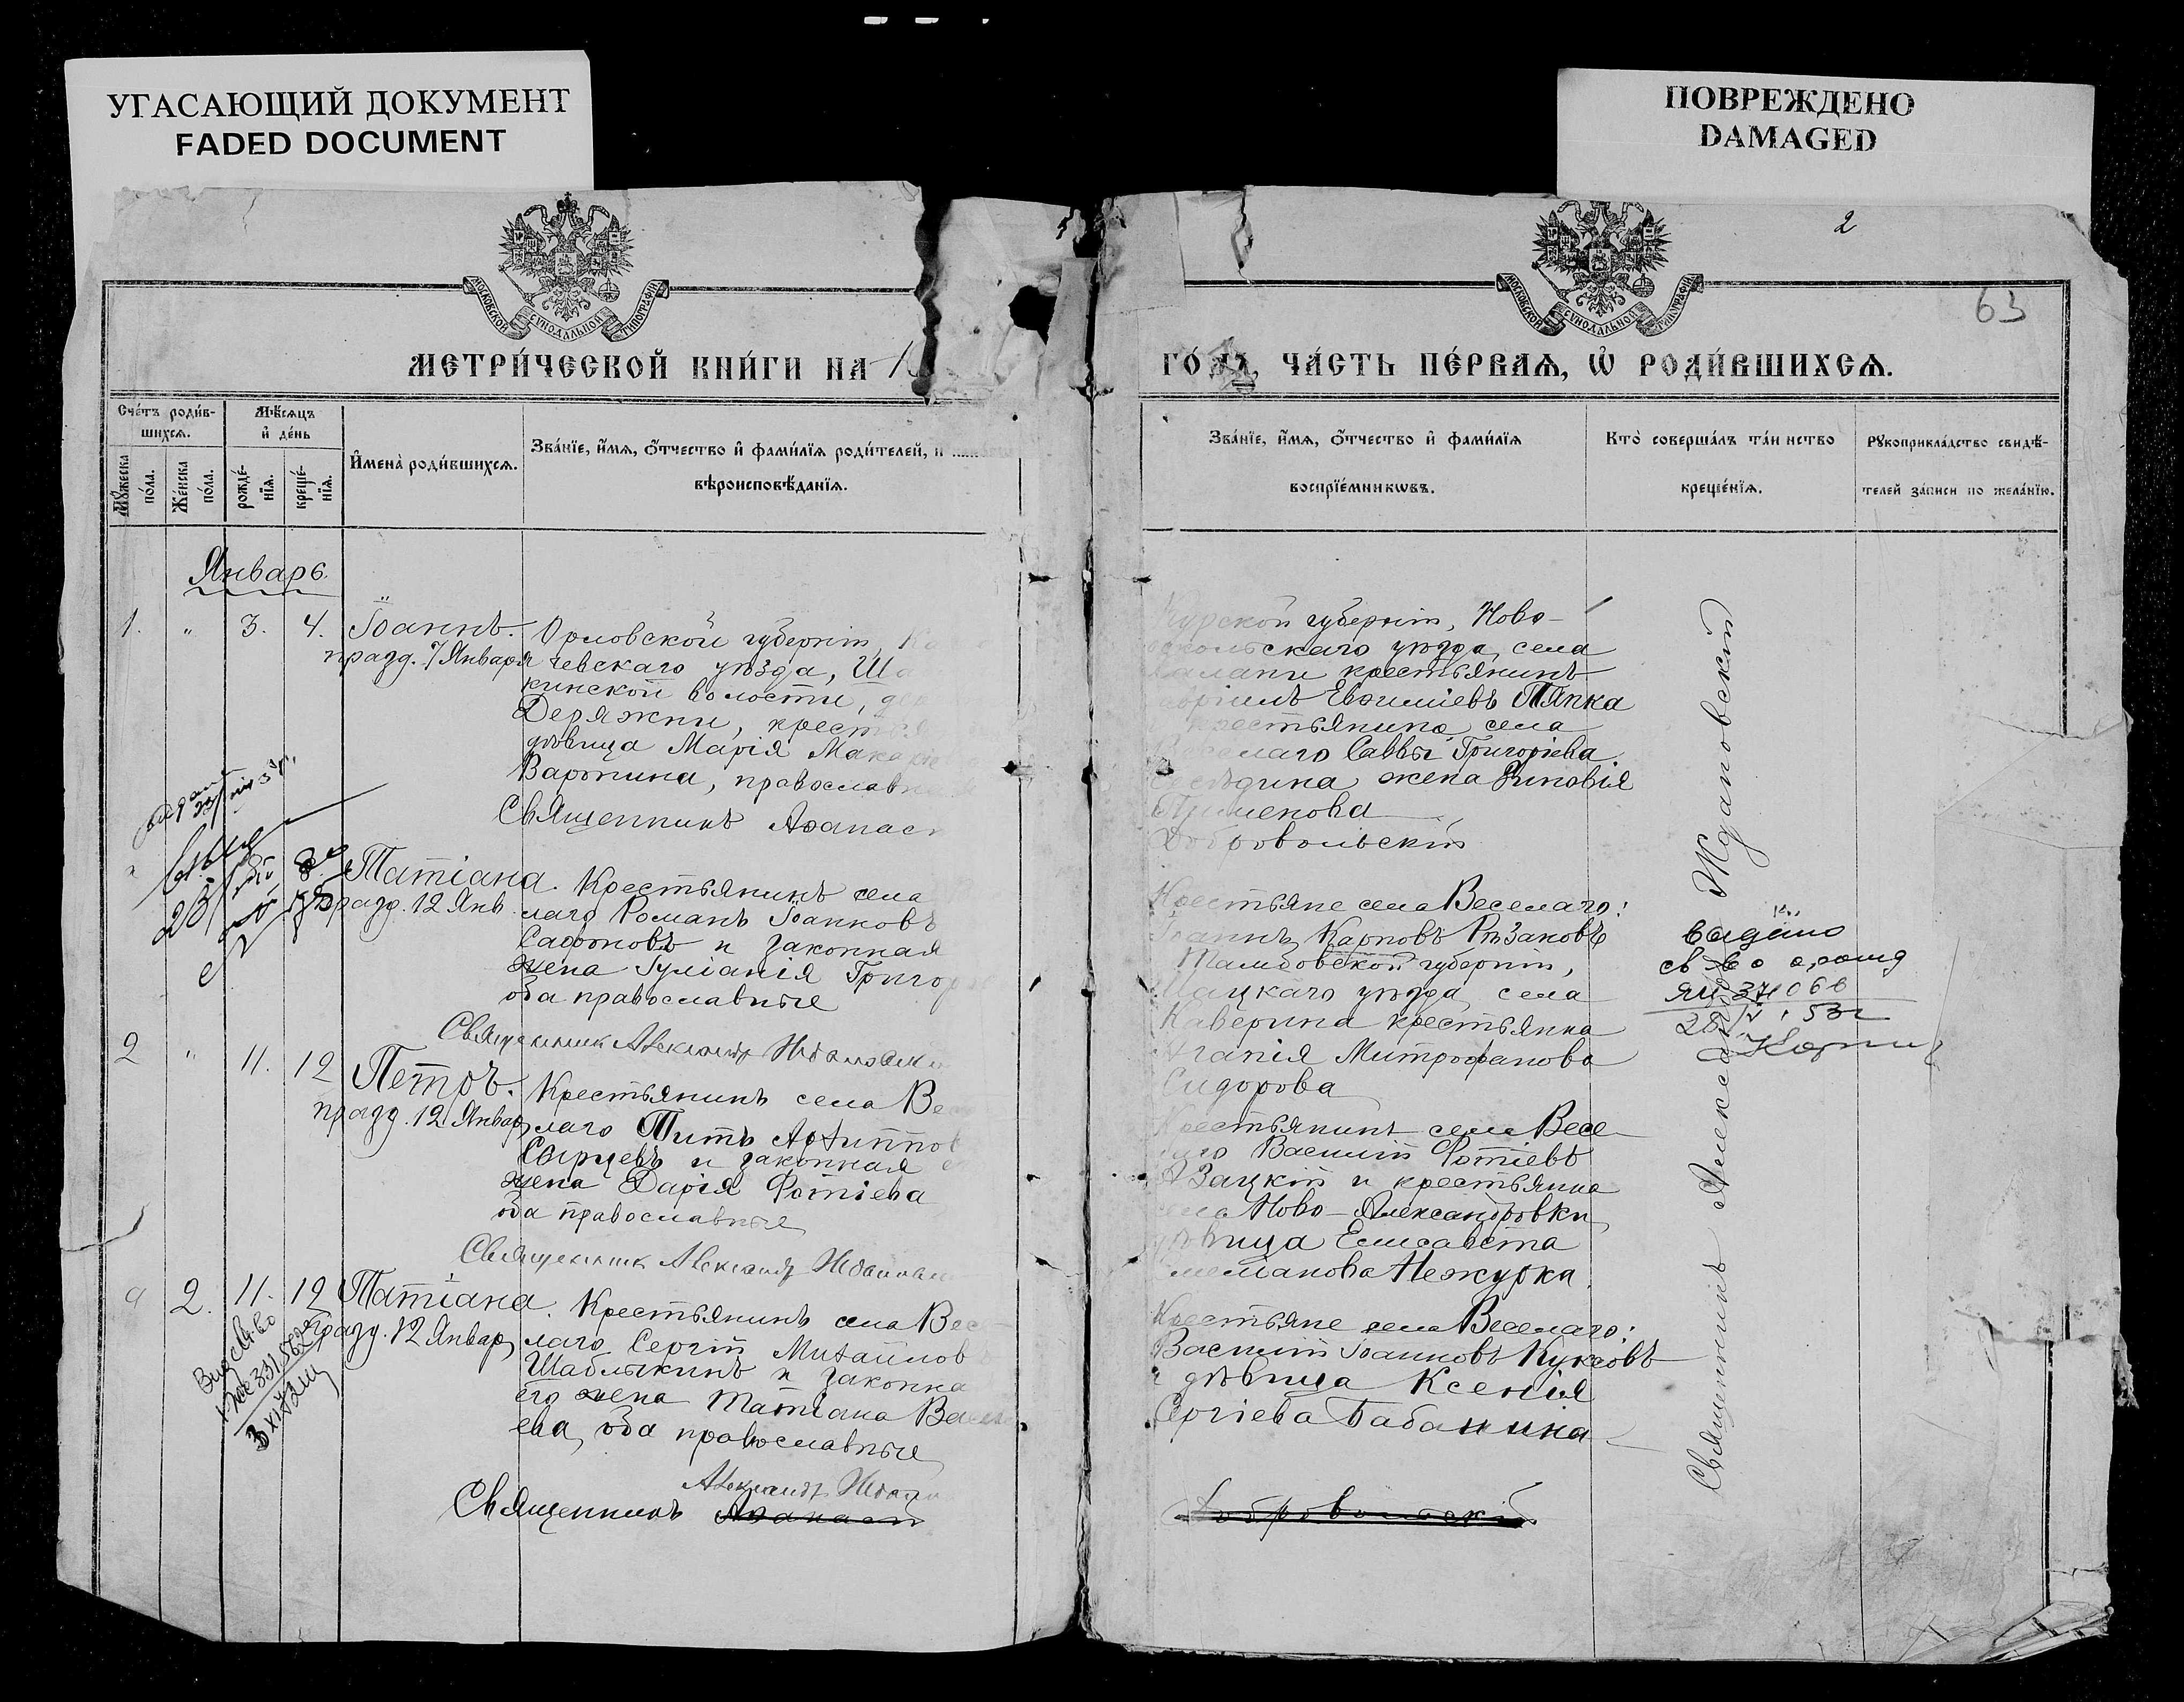 УГАСАЮЩИЙ ДОКУМЕНТ
FADED DOCUMENT
ПОВРЕЖДЕНО
DAMAGED
2
63
МОСКОВСКОЙ СѴНОДАЛЬНОЙ ТИПОГРАФІИ
МОСКОВСКОЙ СѴНОДАЛЬНОЙ ТИПОГРАФІИ
МЕТРИ́ЧЕСКОЙ КНИ́ГИ НА 1
ГО́ДЪ, ЧА́СТЬ ПЕ́РВАѦ, Ѡ҆ РОДИ́ВШИХСѦ.
Сче́тъ роди́в-
шихсѧ.
Мꙋ́жеска по́ла.
Же́нска по́ла.
Мѣ́сѧцъ
и҆ де́нь
рожде́-
нїѧ.
креще́-
нїѧ.
И҆мена̀ роди́вшихсѧ.
Зва́нїе, и҆́мѧ, ѻ҆́тчество и҆ фами́лїѧ роди́телей, и҆
вѣроисповѣ́данїѧ.
Зва́нїе, и҆́мѧ, ѻ҆́тчество и҆ фами́лїѧ
воспрїе́мникѡвъ.
Кто̀ соверша́лъ та́инство
креще́нїѧ.
Рꙋкоприкла́дство свидѣ́-
телей за́писи по жела́нїю.
Январь.
1. " 3. 4. Іоаннъ.
празд. 7 Января
Орловской губерніи, Ка
чевскаго уѣзда, Ша
кинской волости, де
Деряжни, крестья
дѣвица Марія Макаріе
Варонина, православн
Священникъ Аѳанас
Курской губерніи, Ново-
оскольскаго уѣзда, села
крестьянинъ
Евѳиміевъ Тяпка
крестьянина села
Веселаго Саввы Григоріева
жена Зиновія
Пименова
Добровольскій
Татіана.
празд. 12 Янв.
Крестьянинъ села
лаго Романъ Іоанновъ
Сафоновъ и законная
жена Іуліанія Григорь
оба православные
Священник Александр Ждановск
Крестьяне села Веселаго:
Іоаннъ Карповъ Рѣзановъ
Тамбовской губерніи,
Шацкаго уѣзда села
Каверина крестьянка
Агапія Митрофанова
Сидорова
выдано
2 " 11. 12 Петръ.
празд. 12 Январ
Крестьянинъ села Ве
лаго Титъ Архиппов
Сырцевъ и законная
жена Дарія Фотіева
оба православные
Священник Александр Ждановск
Крестьянинъ села Весе-
лаго Василій Фотіевъ
Азацкій и крестьянка
села Ново-Александровки
дѣвица Елисавета
Емеліанова Нежурка.
2. 11. 12 Татіана.
празд. 12 Январ
Крестьянинъ села Вес
лаго Сергій Михайлов
Шаблыкинъ и законна
его жена Татіана Васил
ева, оба православные
Александр Ждан
Священникъ Аѳанасій
Крестьяне села Веселаго:
Василій Іоанновъ Куксовъ
и дѣвица Ксенія
Сергіева Бабанина
Добровольскій
Священникъ Александръ Ждановскій